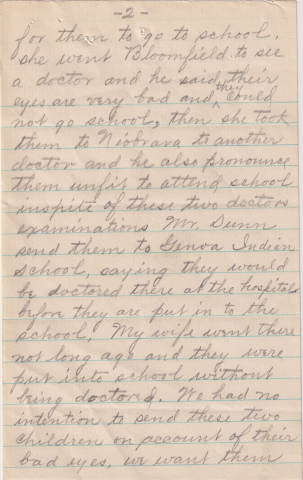 -2-
for them to go to school.
she went Bloomfield to see
a doctor and he said, their
eyes are very bad and they could
not go school, then she took
them to Niobrara to another
doctor and he also pronounce
them unfit to attend school
inspite of these two doctors
examinations Mr. Dunn
send them to Genoa Indian
school, saying they would
be doctored there at the hospitals
before they are put in to the
school, My wife went there
not long ago and they were
put into school without
being doctored. We had no
intention to send these two
children on account of their
bad eyes, we want them